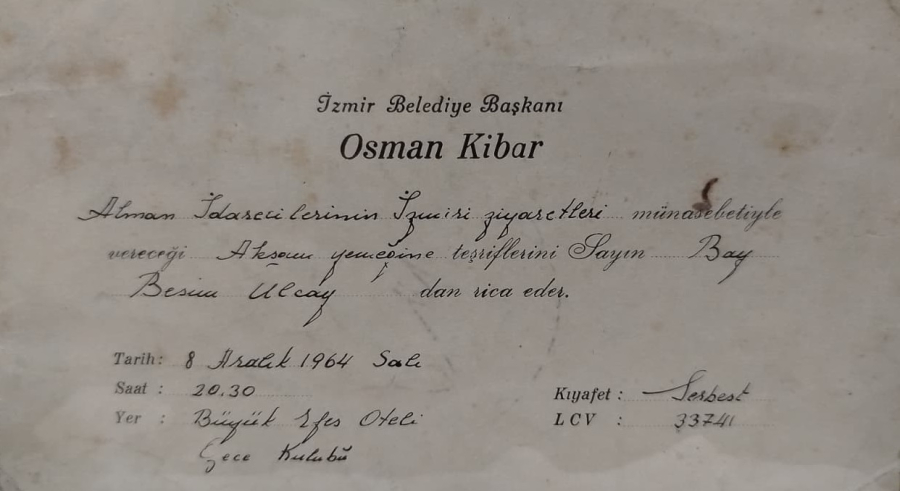 İzmir Belediye Başkanı
Osman Kibar
Alman İdarecilerinin İzmiri ziyaretleri münasebetiyle
vereceği Akşam yemeğine teşriflerini Sayın Bay
Besim Ülcay dan rica eder.
Tarih: 8 Aralık 1964 Salı
Saat : 20.30
Kıyafet : Serbest
Yer : Büyük Efes Oteli
LCV : 33741
Gece Kulubü